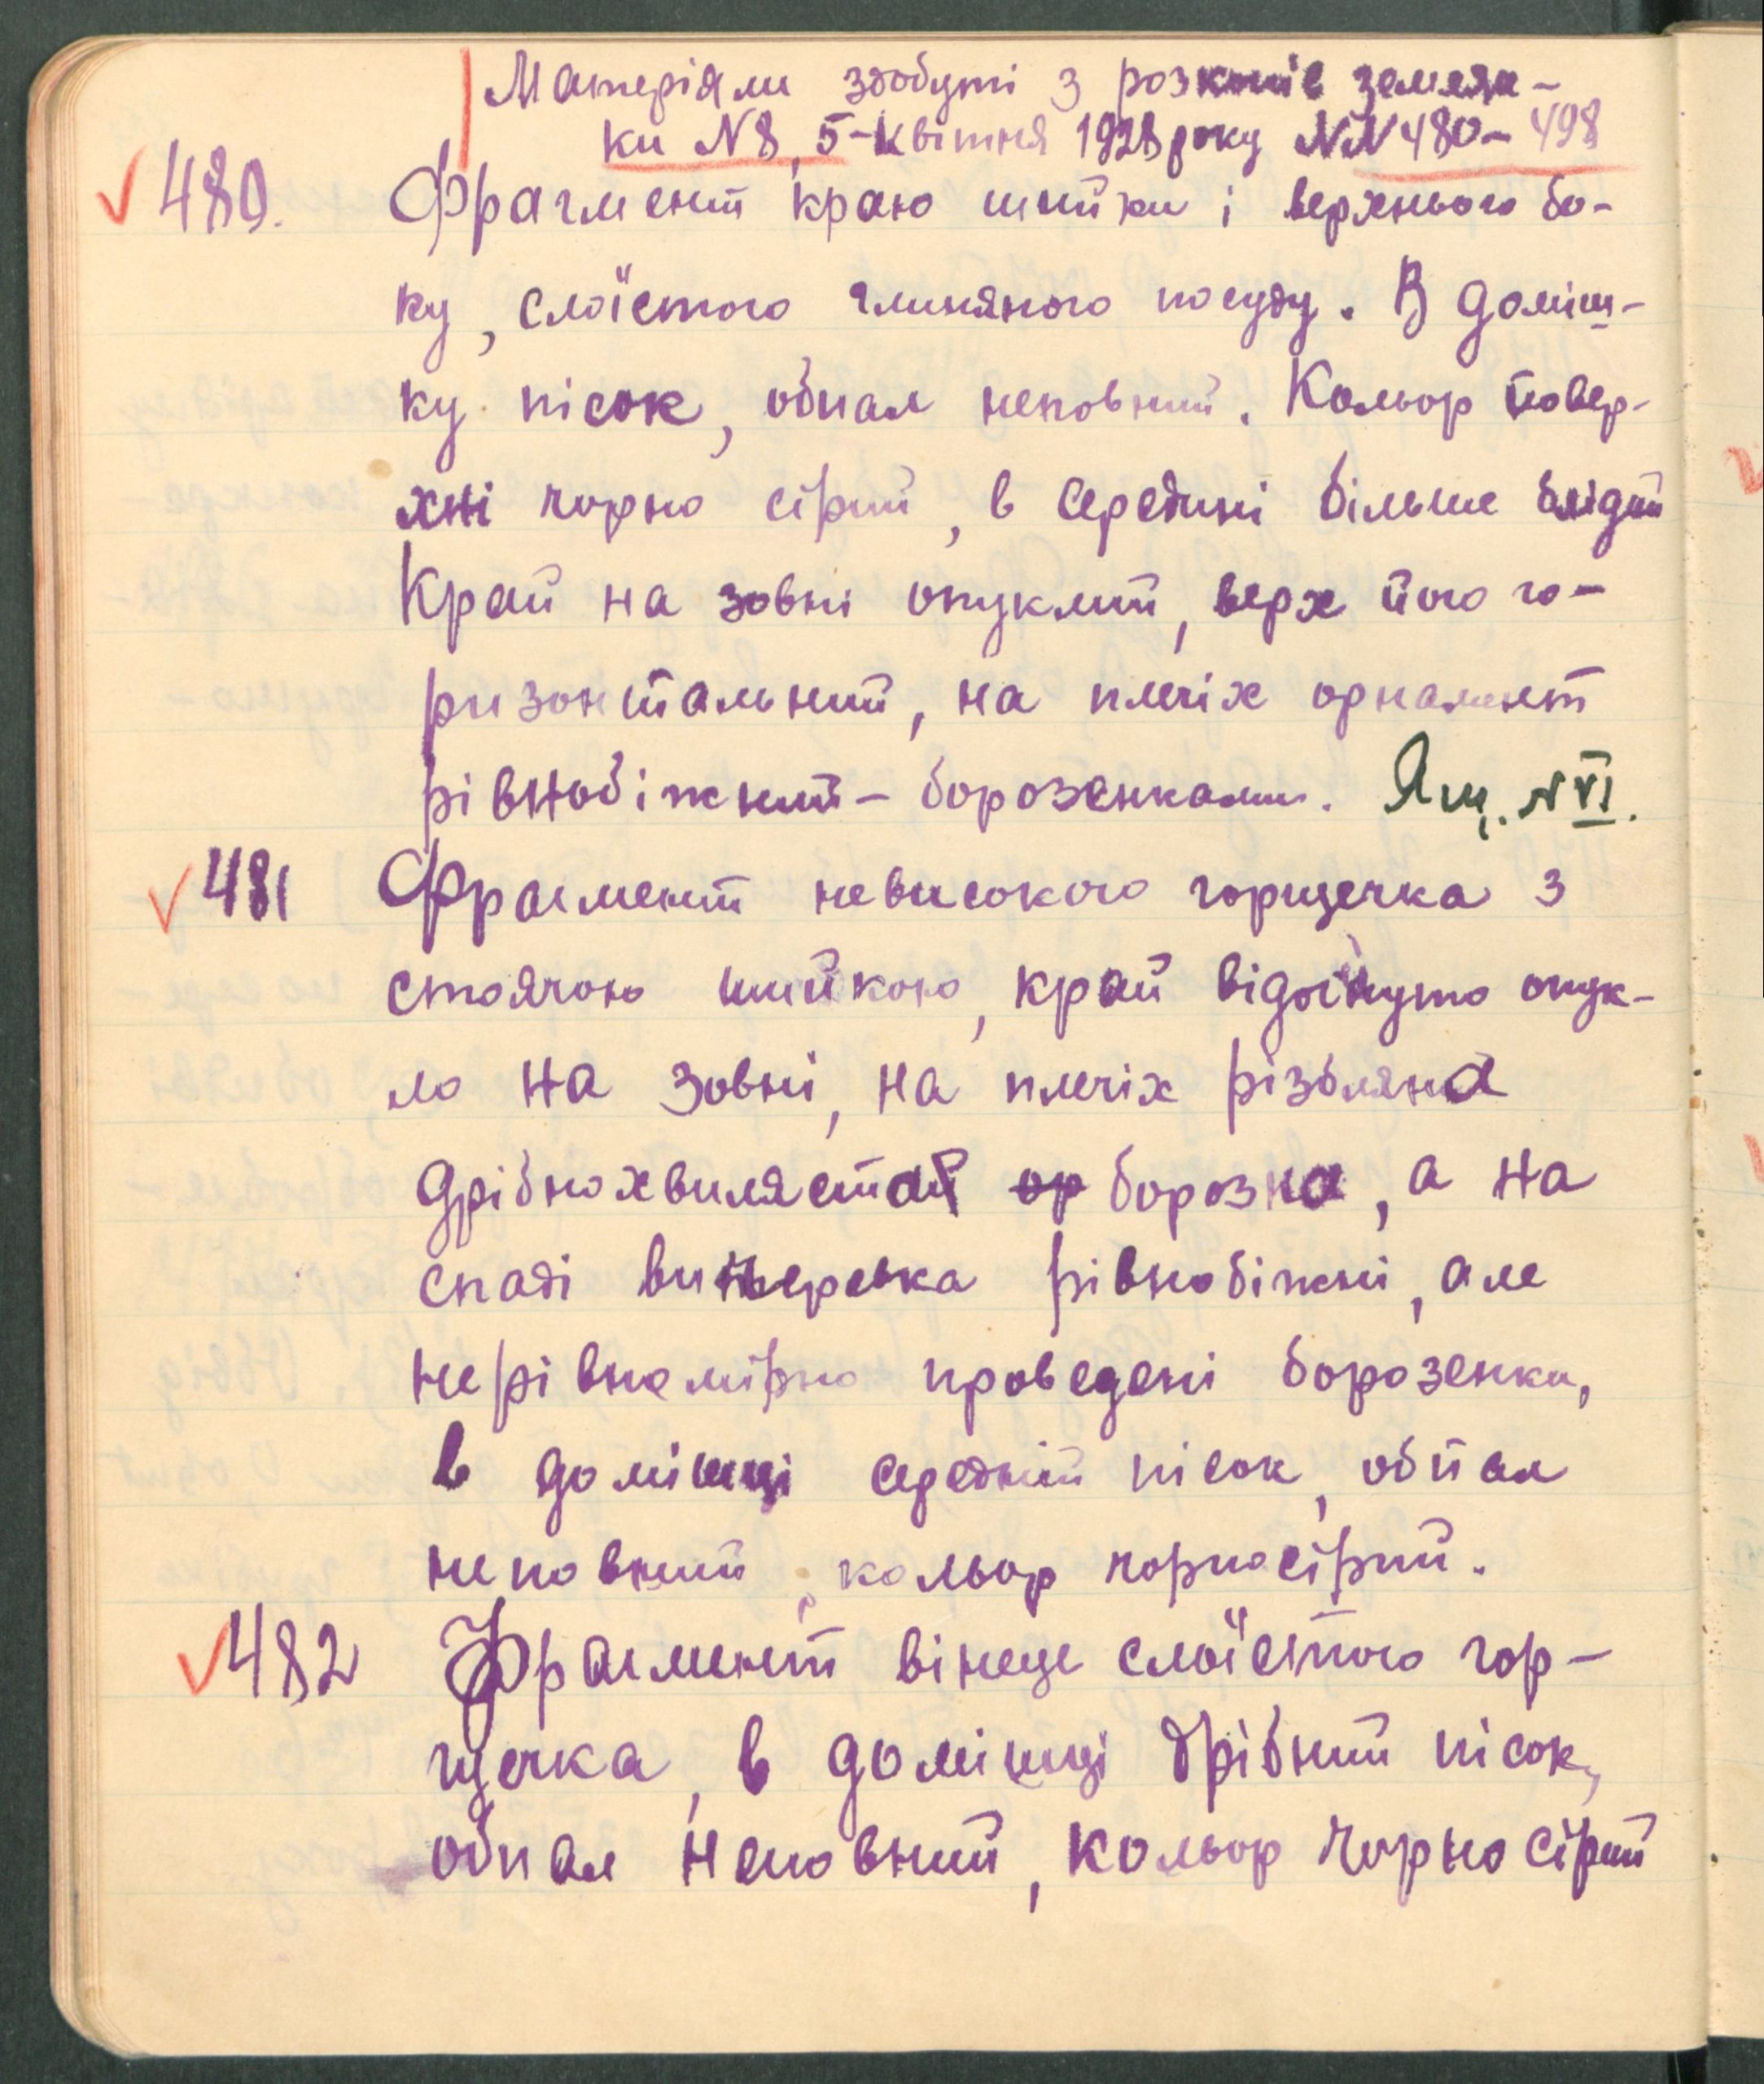 Матеріяли здобуті з розкопів землян-
ки N8, 5-квітня 1928 року NN 480-498
480. Фрагмент краю шийки і верхнього бо-
ку, слоїстого глиняного посуду. В доміш-
ку пісок, обпал неповний. Кольор повер-
хні чорно сірий, в середині більше блідий
Край на зовні опуклий, верх його го-
ризонтальний, на плечіх орнамент
рівнобіжний - борозенками. Ящ. N VI.
481 Фрагмент невисокого горщечка з
стоячою шийкою, край відогнуто опук-
ло на зовні, на плечіх різбляна
дрібнохвиляста ор борозна, а на
спаді виперевка рівнобіжні, але
нерівномірно проведені борозенки,
в домішці середній пісок, обпал
неповний, кольор чорносірий.
482 Фрагмент вінеце слоїстого гор-
щечка, в домішці дрібний пісок,
обпал неповний, кольор чорно сірий